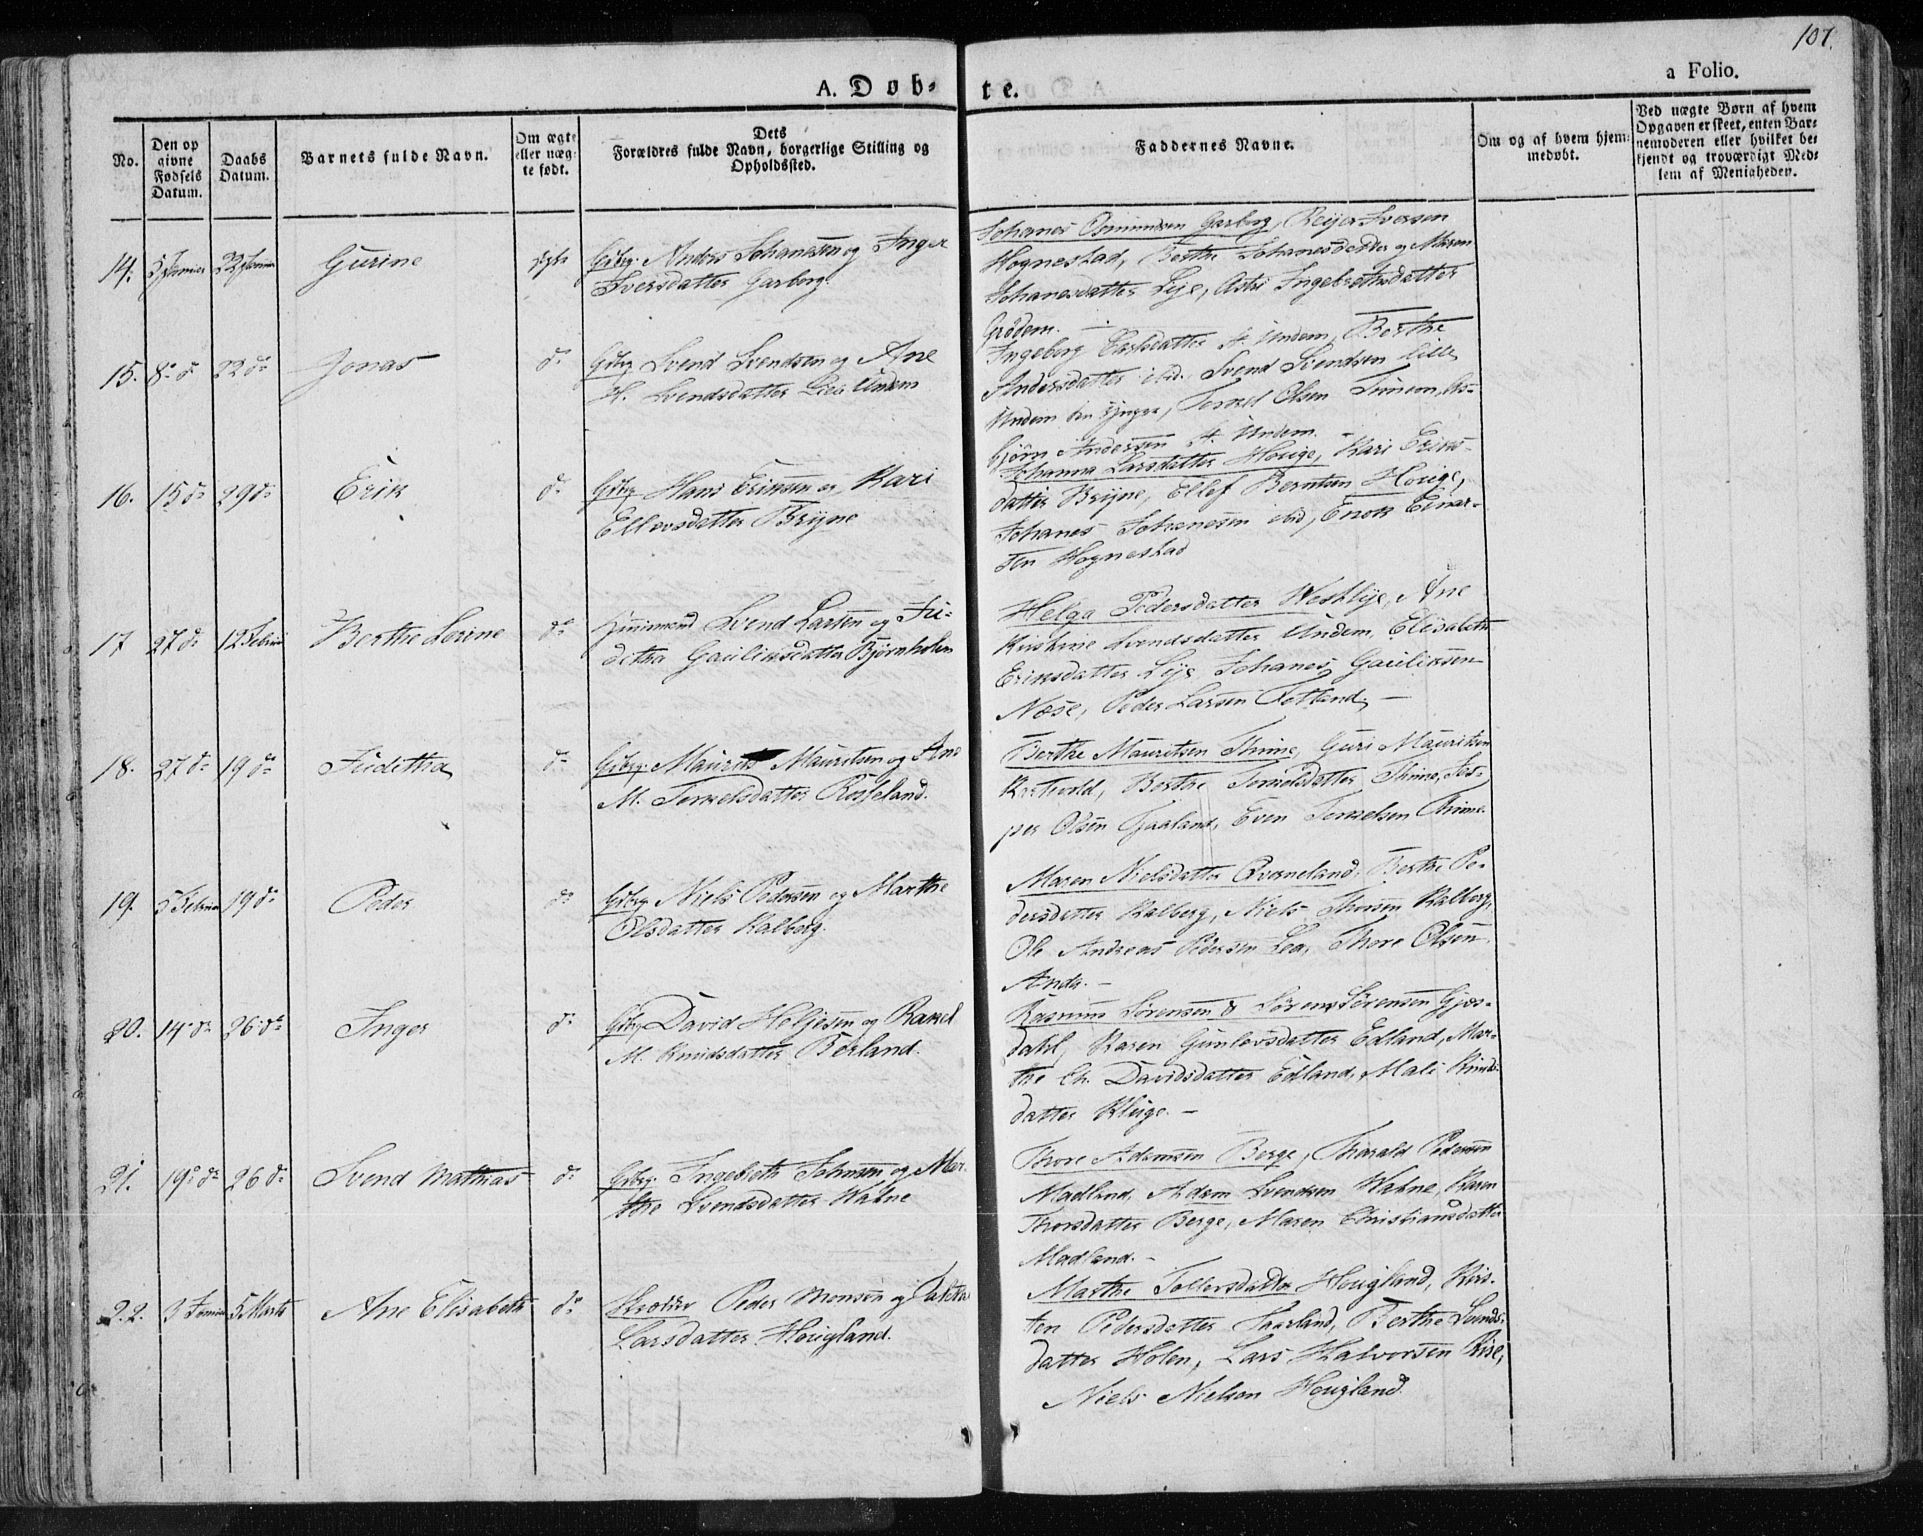 107.
a Folio.
A. Døb-
te.
No.
Den op
givne
Fødsels
Datum.
Daabs
Datum.
Barnets fulde Navn.
Om ægte
eller uæg-
te født.
Dets
Forældres fulde Navn, borgerlige Stilling og
Opholdssted.
Faddernes Navne.
Om og af hvem hjem-
medøbt.
Ved uægte Børn af hvem
Opgaven er skeet, enten Bar-
nemoderen eller hvilket be-
kjendt og troværdigt Med-
lem af Menigheden.
14. 22 Januar Gurine ægte
Gdbrg. Anders Johanesen og Inger
Iversdatter Garborg.
Johanes Osmundsen Garborg, Reijer Iversen
Hognestad, Berthe Johanesdatter og Maren
Johanesdatter Lije, Astri Ingebrethsdatter
Grødem. —
15. 8de d. 22 d. Jonas d.
Gdbrg Svend Svendsen og Ane
H. Svendsdatter Lille Undem
Ingeborg Larsdatter St. Undem, Berthe
Andersdatter ibid. Svend Svendsen lille
Undem den yngre, Torkel Olsen Timeon, As-
bjørn Andersen St. Undem. —
16. 15 d. 29 d. Erik d.
Gdbrg Hans Eriksen og Kari
Ellevsdatter Bryne
Johanna Larsdatter Houge, Kari Eriks-
datter Bryne, Ellef Berntsen Houge,
Johanes Johanesen ibid, Enok Einar-
sen Hognestad
17 27 d. 12 Februar Berthe Serine d.
Huusmand Svend Larsen og Ju-
ditha Gauliksdatter Bjørnholen
Helga Pedersdatter Westlije, Ane
Kirstine Svendsdatter Undem, Elisabeth
Eriksdatter Lije, Johanes Gauliksen
Næse, Peder Larsen Fotland, —
18. 27 d. 19 d. Juditha d.
Gdbrg. Maurits Mauritsen og Ane
M. Torkelsdatter Rosseland.
Berthe Mauritsen Thime, Guri Mauritsen
Berthe Torkelsdatter Thime, Jes-
per Olsen Gaaland, Even Torkelsen Thime.
19. 5 Februar 19 d. Peder d.
Gdbrg. Niels Pedersen og Marthe
Olsdatter Kalberg.
Maren Nielsdatter Qværneland, Berthe Pe-
dersdatter Kalberg, Niels Thorsen Kalberg,
Ole Andreas Pedersen Lea, Thore Olsen
Anda. —
20. 14 d. 26 d. Inger d.
Gdbrg David Heljesen og Rakel
M. Knudsdatter Berland.
Rasmus Sørensen & Søren Sørensen Gjes-
dahl, Karen Gunlevsdatter Edland, Mar-
the Ch. Davidsdatter Edland, Mali Knuds-
datter Kluge. —
21. 19 d. 26 d. Svend Mathias d.
Gdbrg. Ingebreth Johnsen og Mar-
the Svendsdatter Watne
Thore Adamsen Berge, Tharald Pedersen
Madland, Adam Svendsen Watne, Karen
Thorsdatter Berge, Maren Christiansdatter
Madland. —
22. 5 Marts Ane Elisabeth d.
Peder Monsen og
Larsdatter Hougland.
Marthe Tollersdatter Hougland, Kirs-
ten Pedersdatter Haarland, Berthe Svends-
datter Holen, Lars Halvorsen Rise,
Niels Nielsen Hougland.